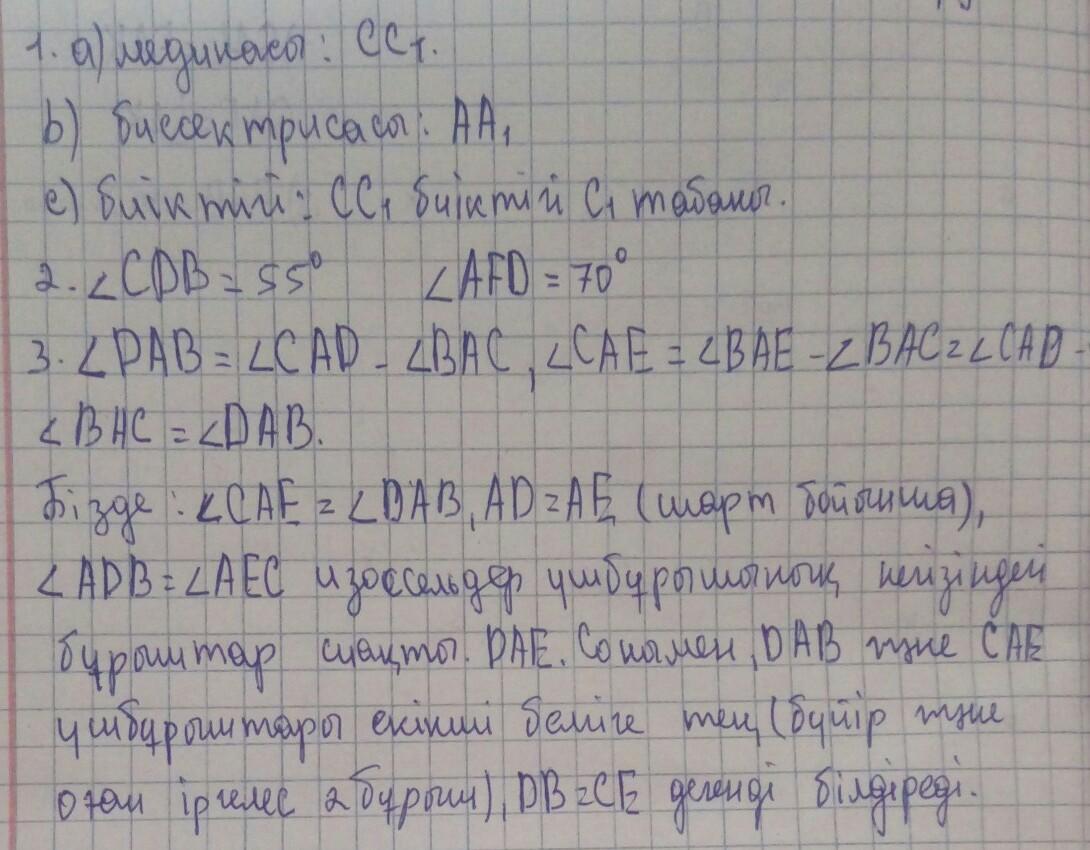 1. а) медианасы: CC₁.
b) биссектрисасы: AA₁
c) биіктігі: CC₁ биіктігі C₁ табаны.
2. ∠CDB = 55° ∠AFD = 70°
3. ∠DAB = ∠CAD - ∠BAC, ∠CAE = ∠BAE - ∠BAC = ∠CAD -
∠BAC = ∠DAB.
Бізде: ∠CAE = ∠DAB, AD = AE (шарт бойынша),
∠ADB = ∠AEC изоссельдер үшбұрышының негізіндегі
бұрыштар сияқты. DAE. Сонымен, DAB және CAE
үшбұрыштары екінші белгіге тең (бүйір және
оған іргелес 2 бұрыш), DB = CE дегенді білдіреді.